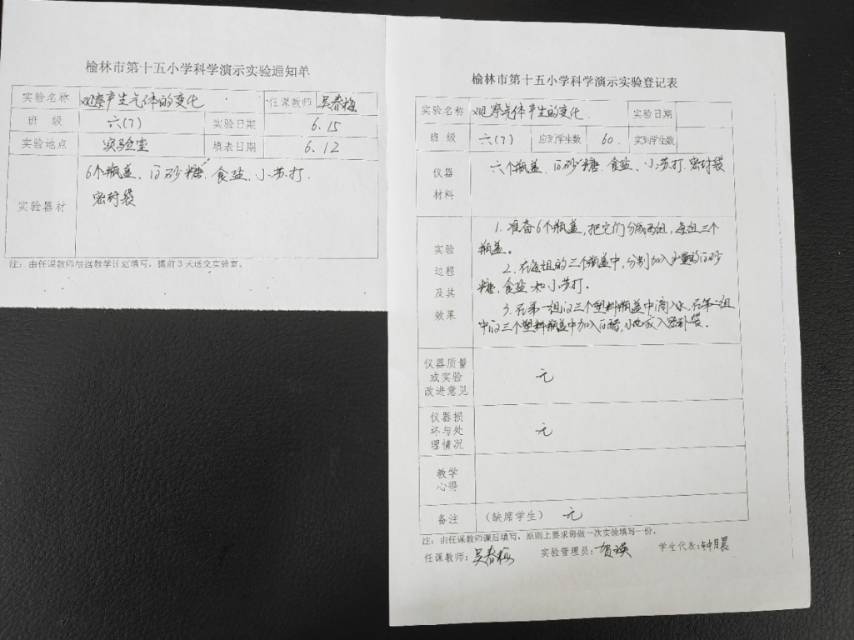 榆林市第十五小学科学演示实验通知单
实验名称 观察产生气体的变化 任课教师 吴春梅
班 级 六(7) 实验日期 6.15
实验地点 实验室 填表日期 6.12
实验器材 6个瓶盖、白砂糖、食盐、小苏打、
密封袋
注:由任课教师根据教学计划填写,提前3天送交实验室。
榆林市第十五小学科学演示实验登记表
实验名称 观察气体产生的变化 实验日期
班 级 六(7) 应到学生数 60 实到学生数
仪器
材料
六个瓶盖、白砂糖、食盐、小苏打、密封袋
实验
过程
及其
效果
1. 准备6个瓶盖,把它们分成两组,每组三个
瓶盖。
2. 在每组的三个瓶盖中,分别加入少量的白砂
糖、食盐和小苏打。
3. 在第一组的三个塑料瓶盖中滴入水,在第二组
中的三个塑料瓶盖中加入白醋,放入密封袋。
仪器质量
或实验
改进意见
无
仪器损
坏与处
理情况
无
教学
心得
备注 (缺席学生) 无
注:由任课教师课后填写,原则上要求每做一次实验填写一份。
任课教师:吴春梅 实验管理员:贺瑛 学生代表: